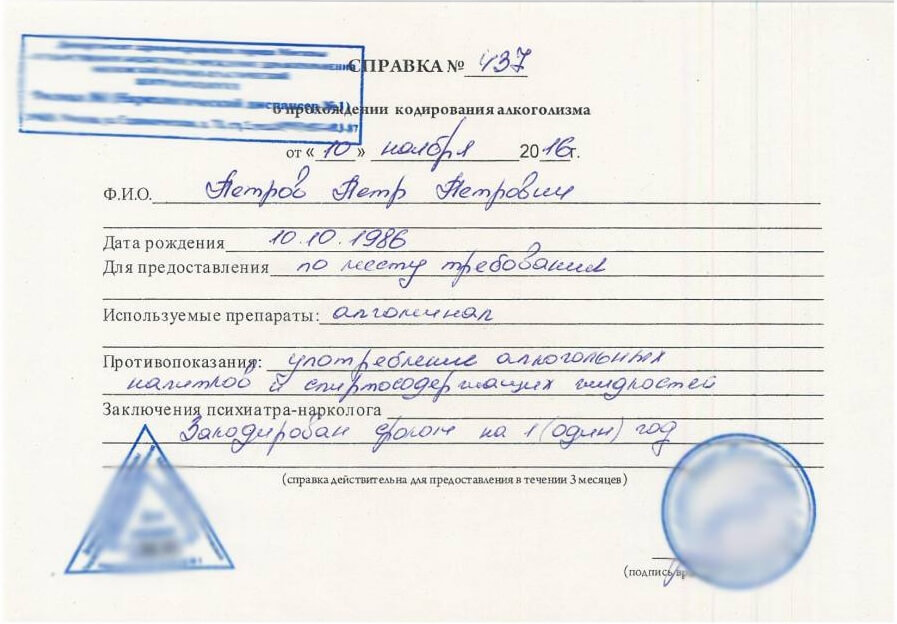 СПРАВКА № 437
о прохождении кодирования алкоголизма
от « 10 » ноября 2016г.
Ф.И.О. Петров Петр Петрович
Дата рождения 10.10.1986
Для предоставления по месту требования
Используемые препараты: алгоминал
Противопоказания: употребление алкогольных
напитков и спиртосодержащих жидкостей
Заключения психиатра-нарколога
Закодирован сроком на 1 (один) год
(справка действительна для предоставления в течении 3 месяцев)
(подпись